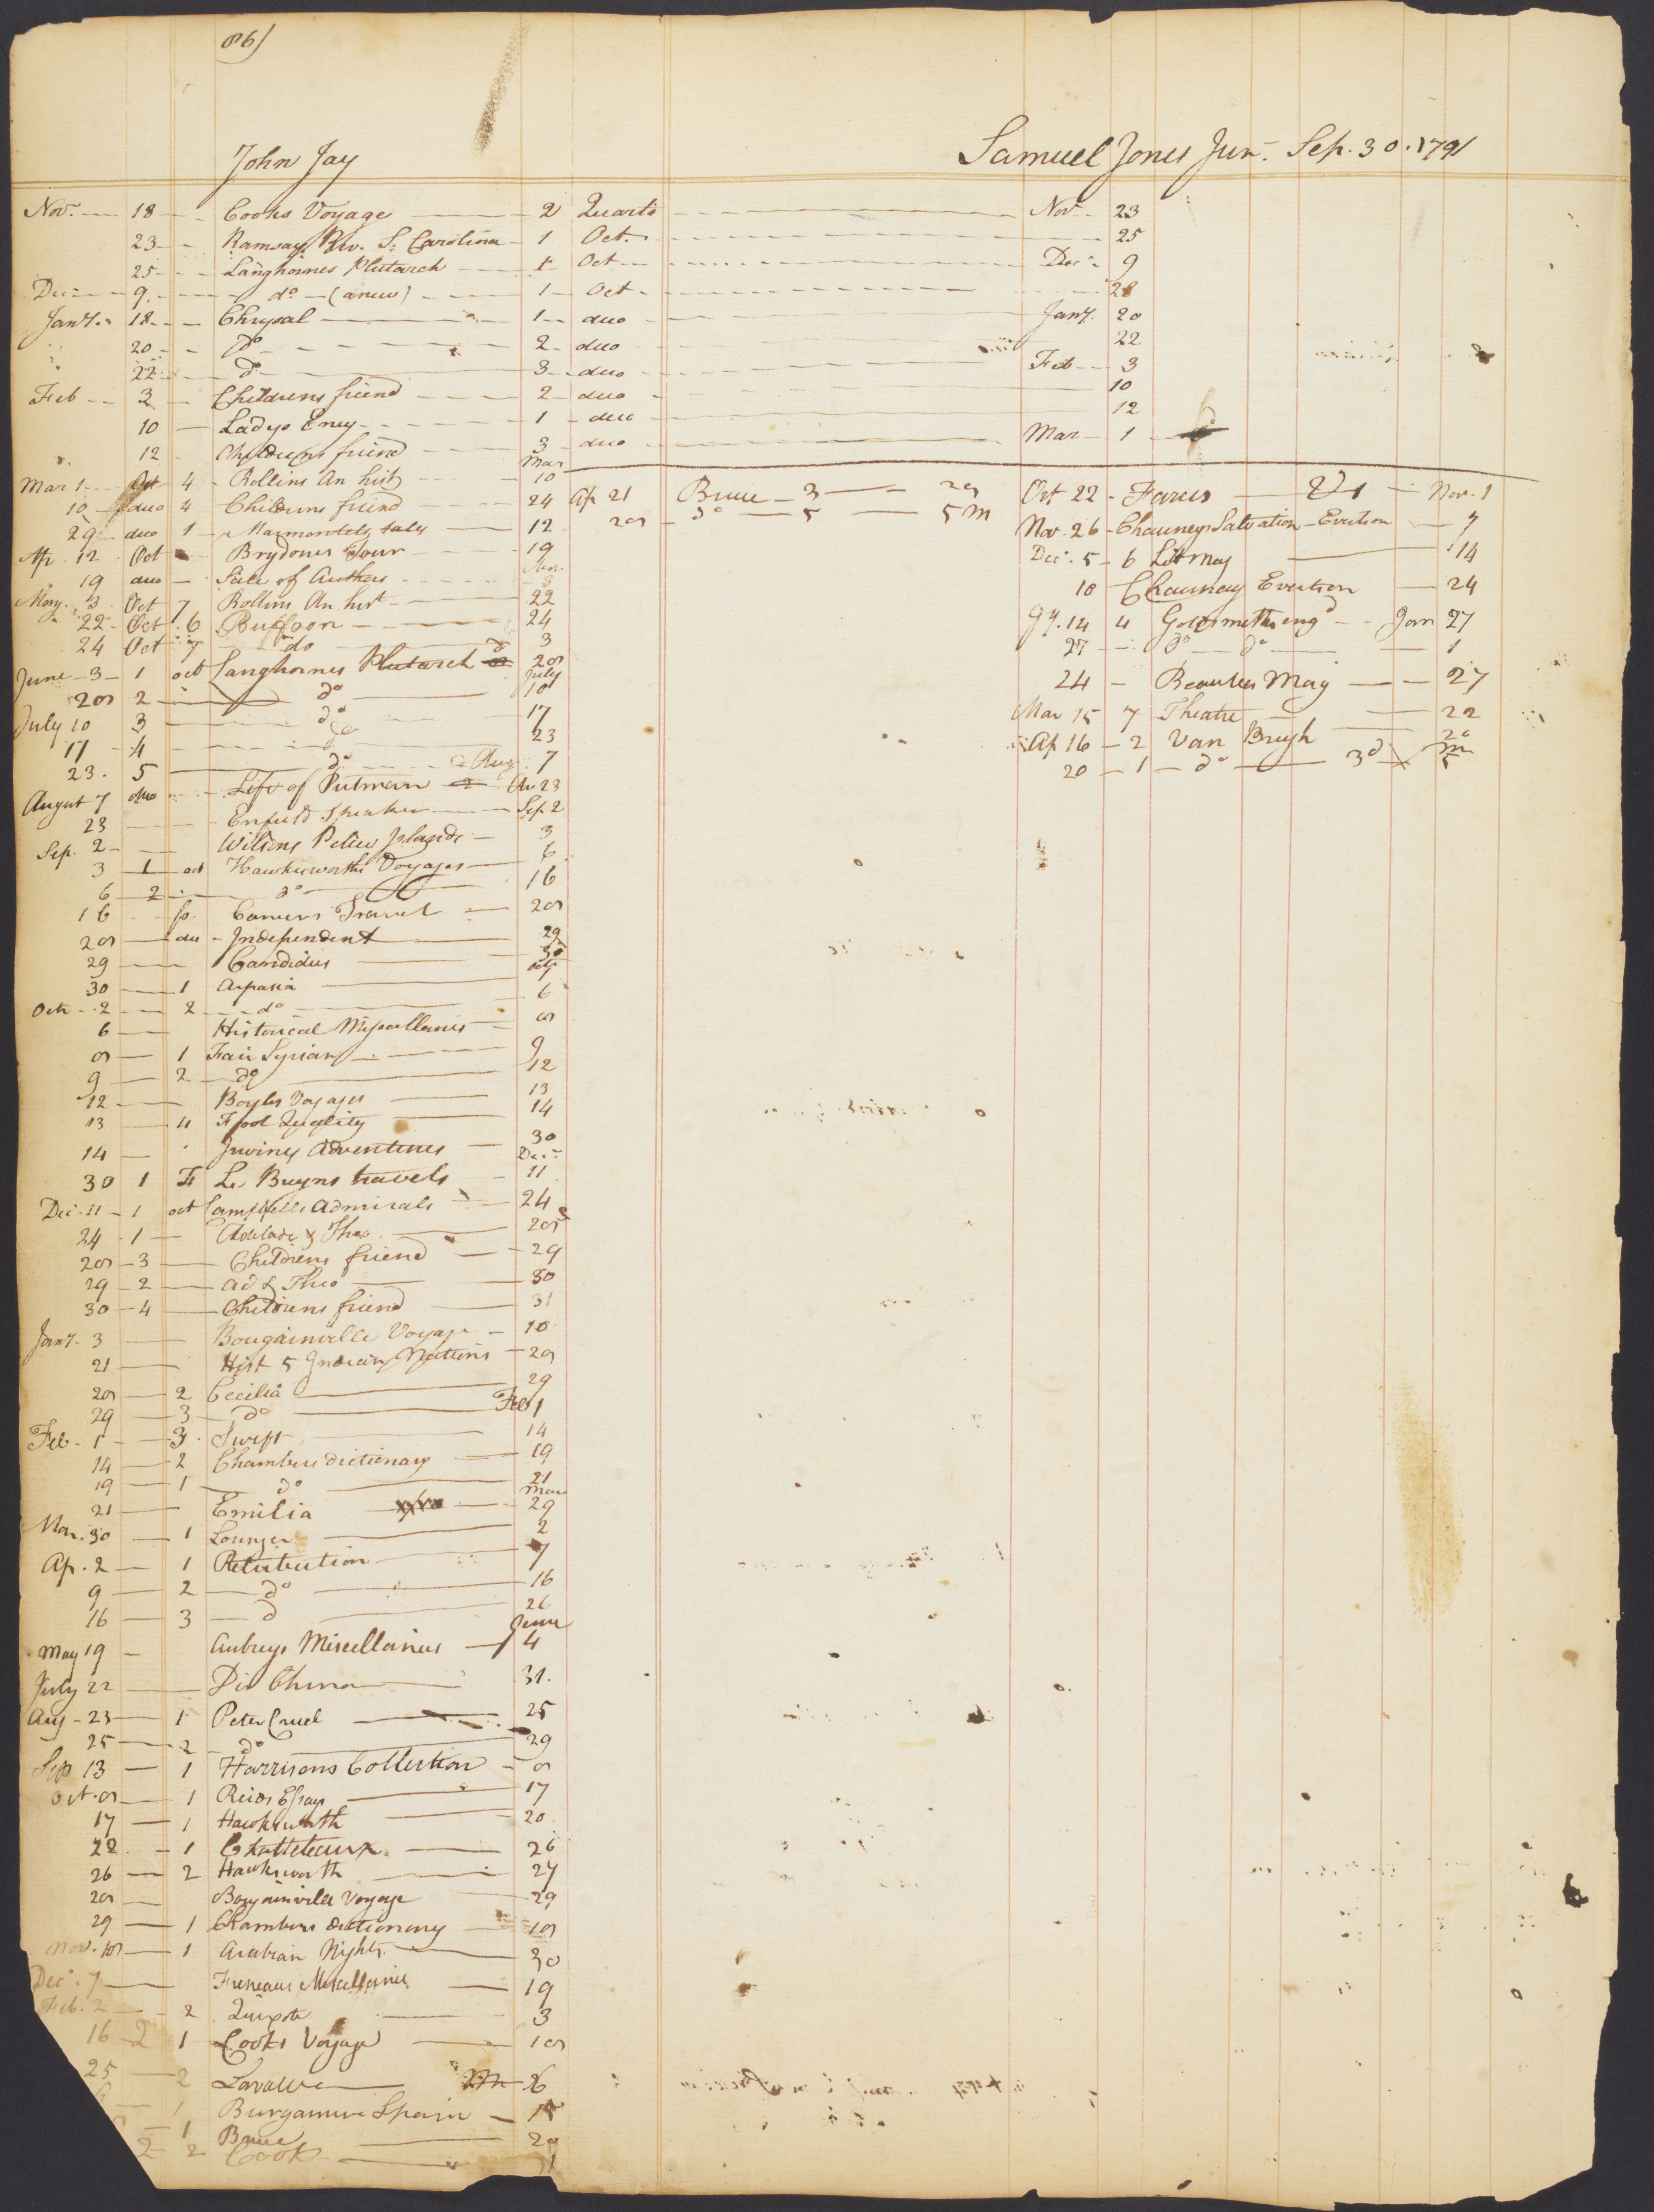 86)
John Jay
Samuel Jones Junr. Sep. 30. 1791
Nov. 18 Cooks Voyage 2 Quarto Nov. 23
23 Ramsays Rev. S. Carolina 1 Oct. 25
25 Langhornes Plutarch 1 Oct Dec 9
Dec 9. do (anew) 1 Oct 28
Jany. 18 Chrysal 1 duo Jany. 20
20 Do 2 duo 22
22 Do 3 duo Feb 3
Feb 3 Childrens friend 2 duo 10
10 Ladys Ency 1 duo 12
12 Childrens friend 3 duo Mar 1
Mar 1 Oct 4 Rollins An hist Mar 10
10 duo 4 Childrens friend 24
29 duo 1 Marmontels tales 12
Ap. 12 Oct Brydones Tour 19
19 duo Sale of Authors
May 3 Oct 7 Rollins An hist 22
22 Oct 6 Buffoon 24
24 Oct 7 do 3
June 3 1 oct Langhornes Plutarch 28
28 2 do July 10
July 10 3 do 17
17 4 do 23
23. 5 do Aug 7
August 7 duo Life of Putman 23
23 Enfield Speaker Sep 2
Sep. 2 Wilsons Pelew Islands 3
3 1 oct Hawkesworths Voyages 6
6 2 do 16
16 fo. Carvers Travel 28
28 duo Independent 29
29 Candidus 30
30 1 Aspasia
Oct 2 2 do 6
6 Historical Miscellanies 8
8 1 Fair Syrian 9
9 2 do 12
12 Boyles Voyages 13
13 4 Fool Quality 14
14 Irvings Adventures 30
30 1 F Le Buyns travels Dec 11
Dec. 11 1 oct Campbells Admirals 24
24 1 Adelade & Theo. 28
28 3 Childrens friend 29
29 2 Ad & Theo 30
30 4 Childrens friend 31
Jany. 3 Bougainville Voyage 10
21 Hist 5 Indian Nations 28
28 2 Cecilia 29
29 3 Do Feb 1
Feb. 1 3 Swift 14
14 2 Chambers dictionary 19
19 1 do 21
21 Emilia Mar 29
Mar. 30 1 Lounger 2
Ap. 2 1 Retribution 7
9 2 do 16
16 3 d 26
May 19 Aubreys Miscellanies June 4
July 22 Dis China 31.
Aug 23 1 Peter Cruel 25
25 2 do 29
Sep 13 1 Harrisons Collection 8
Oct. 8 1 Reids Essays 17
17 1 Hawksworth 20
22 1 Chatteleaux 26
26 2 Hawksworth 27
28 Bougainville Voyage 29
29 1 Chambers dictionary 18
Nov. 18 1 Arabian Nights 30
Dec. 7 Freneaus Miscellanies 19
Feb. 2 2 Quixote 3
16 2 1 Cooks Voyage 18
25 2 6
1 Burganne Spain 15
1 Bruce 28
2 2 Cook
Ap 21 Bruce 3 28
28 do 5 5 M
Oct 22 Farces Vol 1 Nov. 1
Nov. 26 Chaunceys Salvation Evertson 7
Dec. 5 6 Lit Mag 14
18 Chauncey Evertson 24
Jy. 14 4 Goldsmiths eng d Jan 27
27 do do 1
24 Beauties Mag 27
Mar 15 7 Theatre 22
Ap 16 2 Van Brugh 20
20 1 do 3d M 5